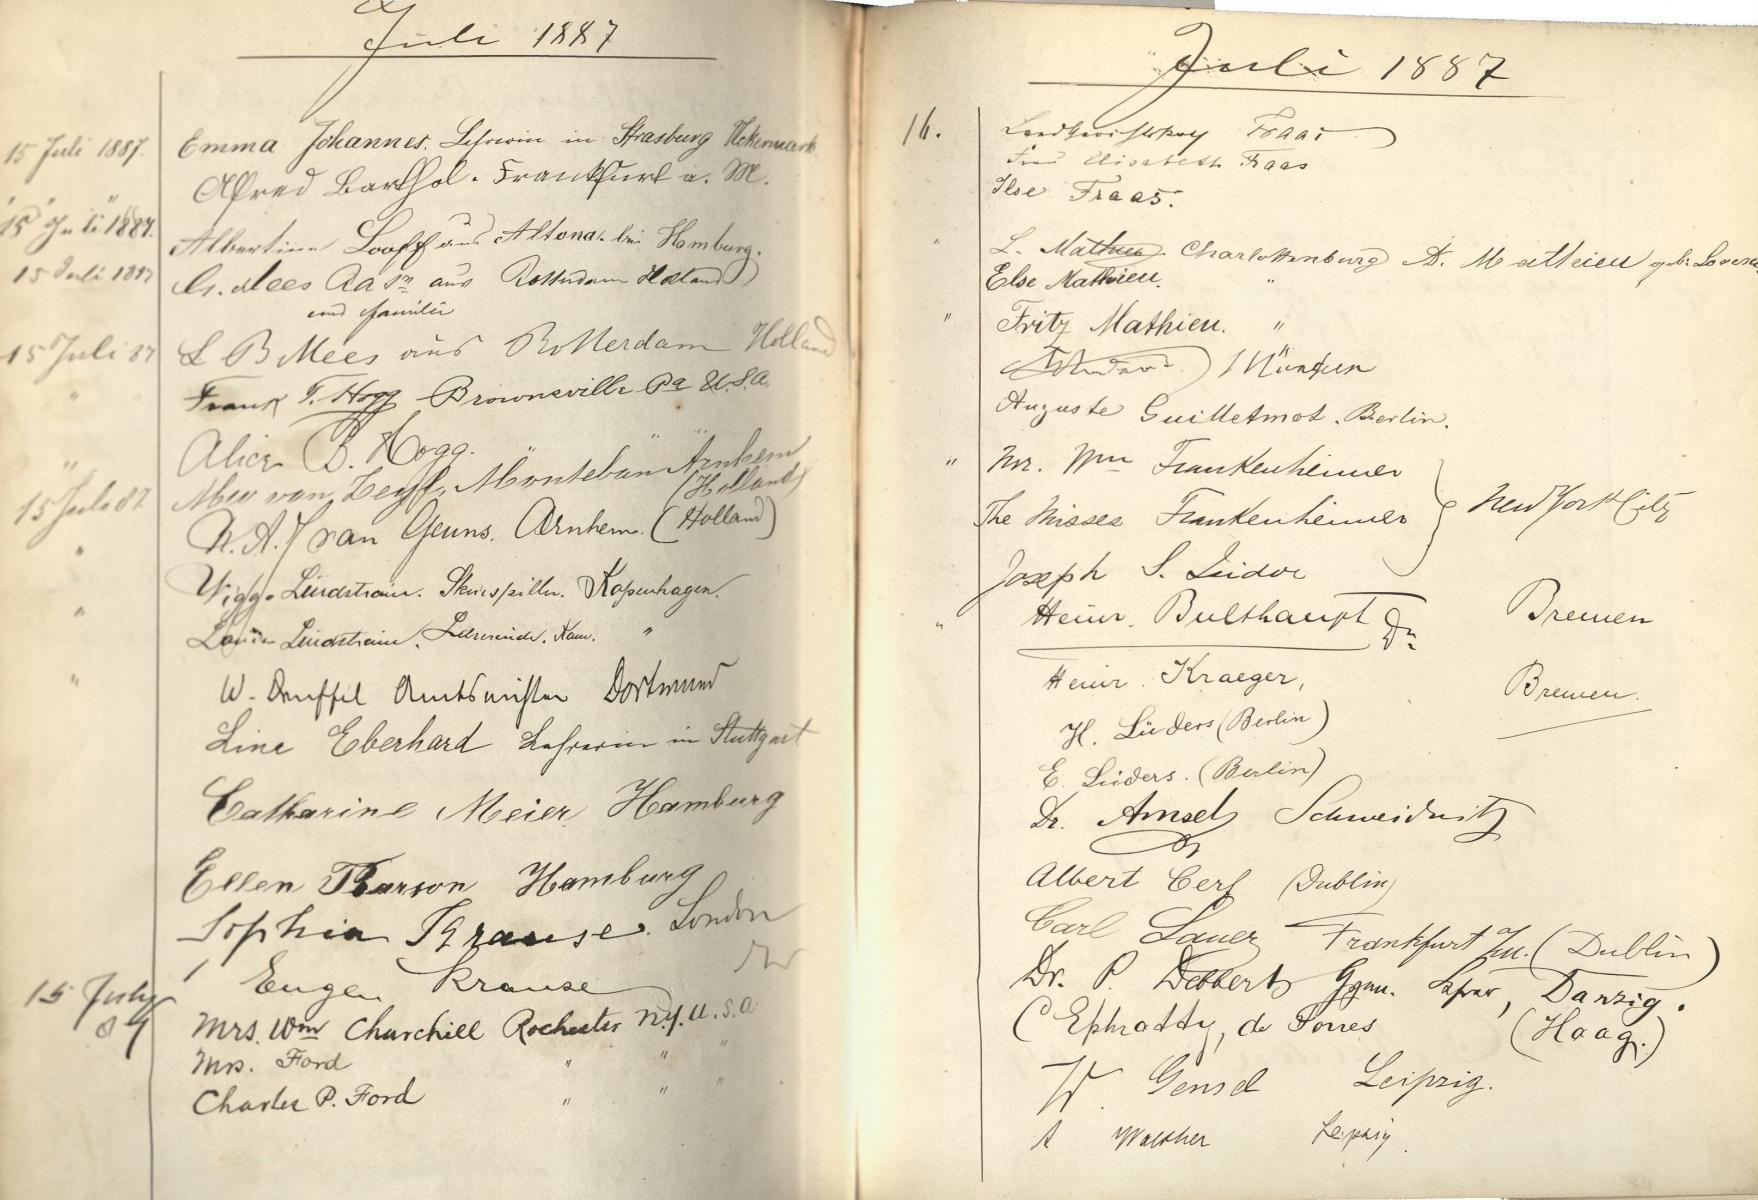 Juli 1887
15 Juli 1887. Emma Johannes. Lehrerin in Strasburg Uckermark
" " " Alfred Barthol. Frankfurt a. M.
15 Juli 1887. Albertine Looff aus Altona. bei Hamburg.
15 Juli 1887 Mees aus Rotterdam Holland
und Familie
15 Juli 87 L B Mees aus Rotterdam Holland
" Frank T. Hogg Brownsville Pa U.S.A.
" Alice B. Hogg. " " "
15 Juli 87 van Arnhem (Holland)
" van Geuns. Arnhem. (Holland)
" Viggo Lindstrøm. Skuespiller. Kopenhagen.
" Lindstrøm. "
W. Druffel Amtsrichter Dortmund
Line Eberhard Lehrerin in Stuttgart
Catharine Meier Hamburg
Ellen Hamburg
Sophia Krause. London
Eugen Krause
15 July 87 Mrs. Wm Churchill Rochester N.Y. U.S.A
Mrs. Ford " " "
Charles P. Ford " " "
Juli 1887
16. Fraas
Elisabeth Fraas
Ilse Fraas.
" L. Mathieu Charlottenburg A. Mathieu geb.
Else Mathieu. "
" Fritz Mathieu. "
München
Auguste Guilletmot. Berlin.
" Mr. Wm Frankenheimer
The Misses Frankenheimer New York City
Joseph S.
" Heinr. Bulthaupt Dr. Bremen
Heinr. Kraeger, Bremen.
H. Lüders (Berlin)
E. Lüders. (Berlin)
Dr. Amsel Schweidnitz
Albert Cerf (Dublin)
Carl Lauer Frankfurt (Dublin)
Dr. P. Debbert Gymn. Lehrer, Danzig.
Ephratty, de Torres (Haag.)
W. Gensel Leipzig.
A Walther Leipzig.